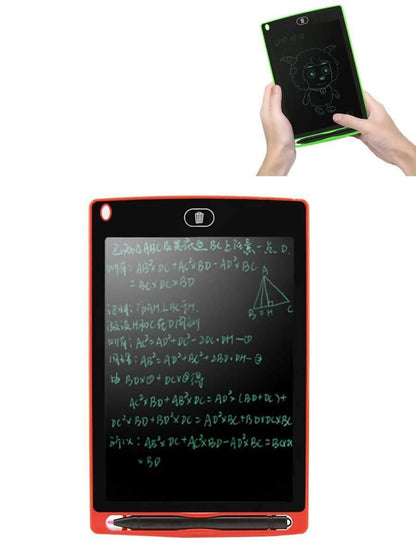 已知△ABC及其底边BC上任意一点D.
则有: AB²×DC+AC²×BD-AD²×BC
=BC×DC×BD
A
B D H C
证明: 作AH⊥BC于H.
则有: AC²=AD²+DC²-2DC·DH-①
同理: AB²=AD²+BD²+2BD·DH-②
由BD×①+DC×②得
AC²×BD+AB²×DC=AD²×(BD+DC)+
DC²×BD+BD²×DC=AD²×BC+BD×DC×BC
所以: AB²×DC+AC²×BD-AD²×BC=BC×DC
×BD